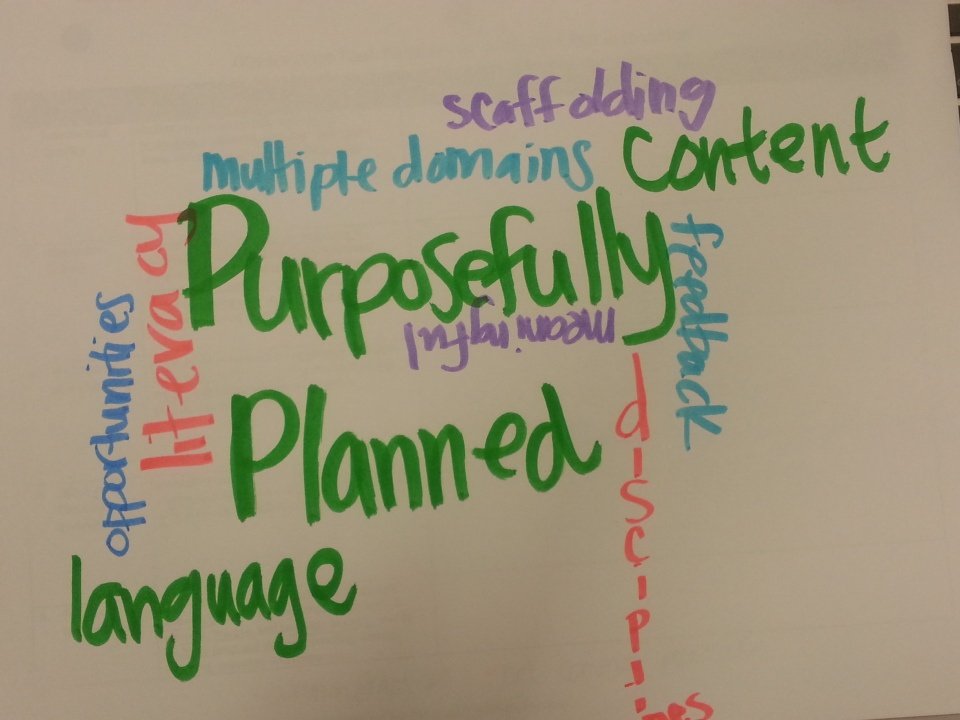 scaffolding
content
multiple domains
Purposefully
meaningful
literacy
opportunities
feedback
Planned
disciplines
language